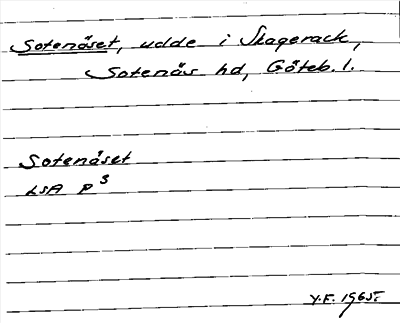 Sotenäset, udde i Skagerack,
Sotenäs hd, Göteb. l.
Sotenäset
LSA P 3
Y.F. 1965